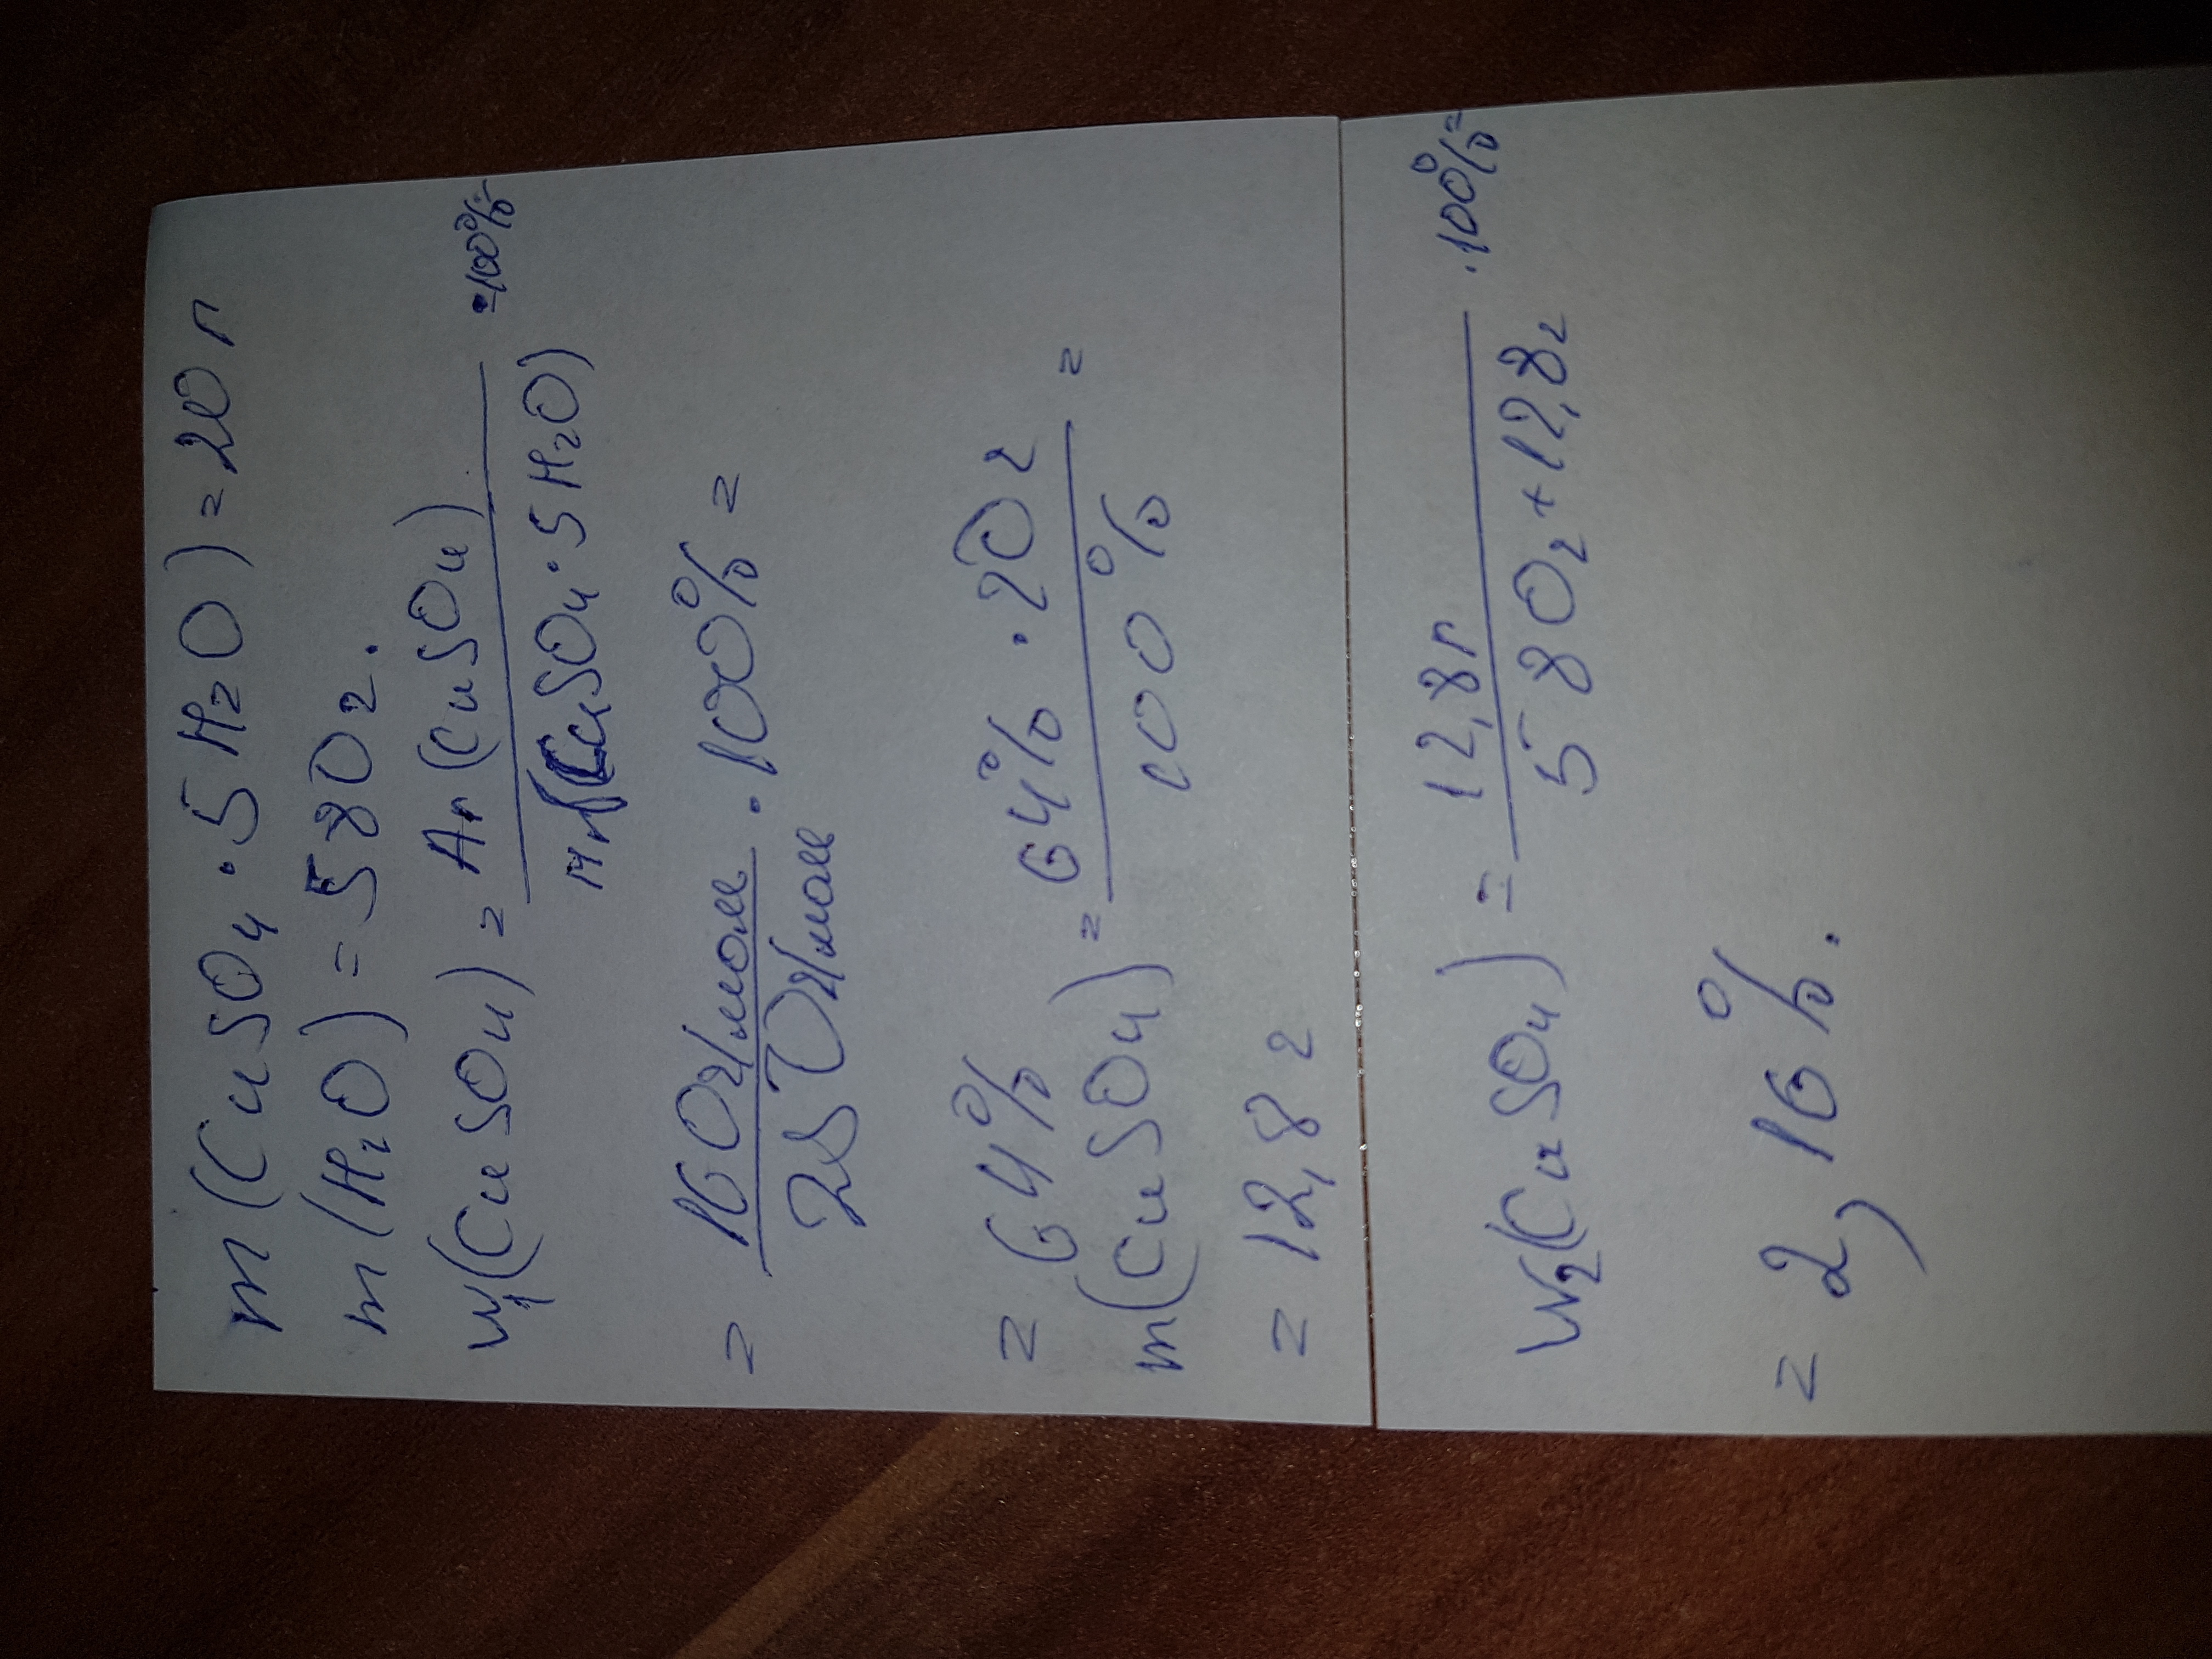 m(CuSO₄·5H₂O)=20 г
m(H₂O)=580г.
w₁(CuSO₄)= Ar(CuSO₄) / Mr(CuSO₄·5H₂O) ·100%=
= 160г/моль / 250г/моль ·100%=
= 64%
m(CuSO₄)= 64%·20г / 100% =
= 12,8 г
w₂(CuSO₄)= 12,8г / 580г+12,8г ·100%=
= 2,16%.